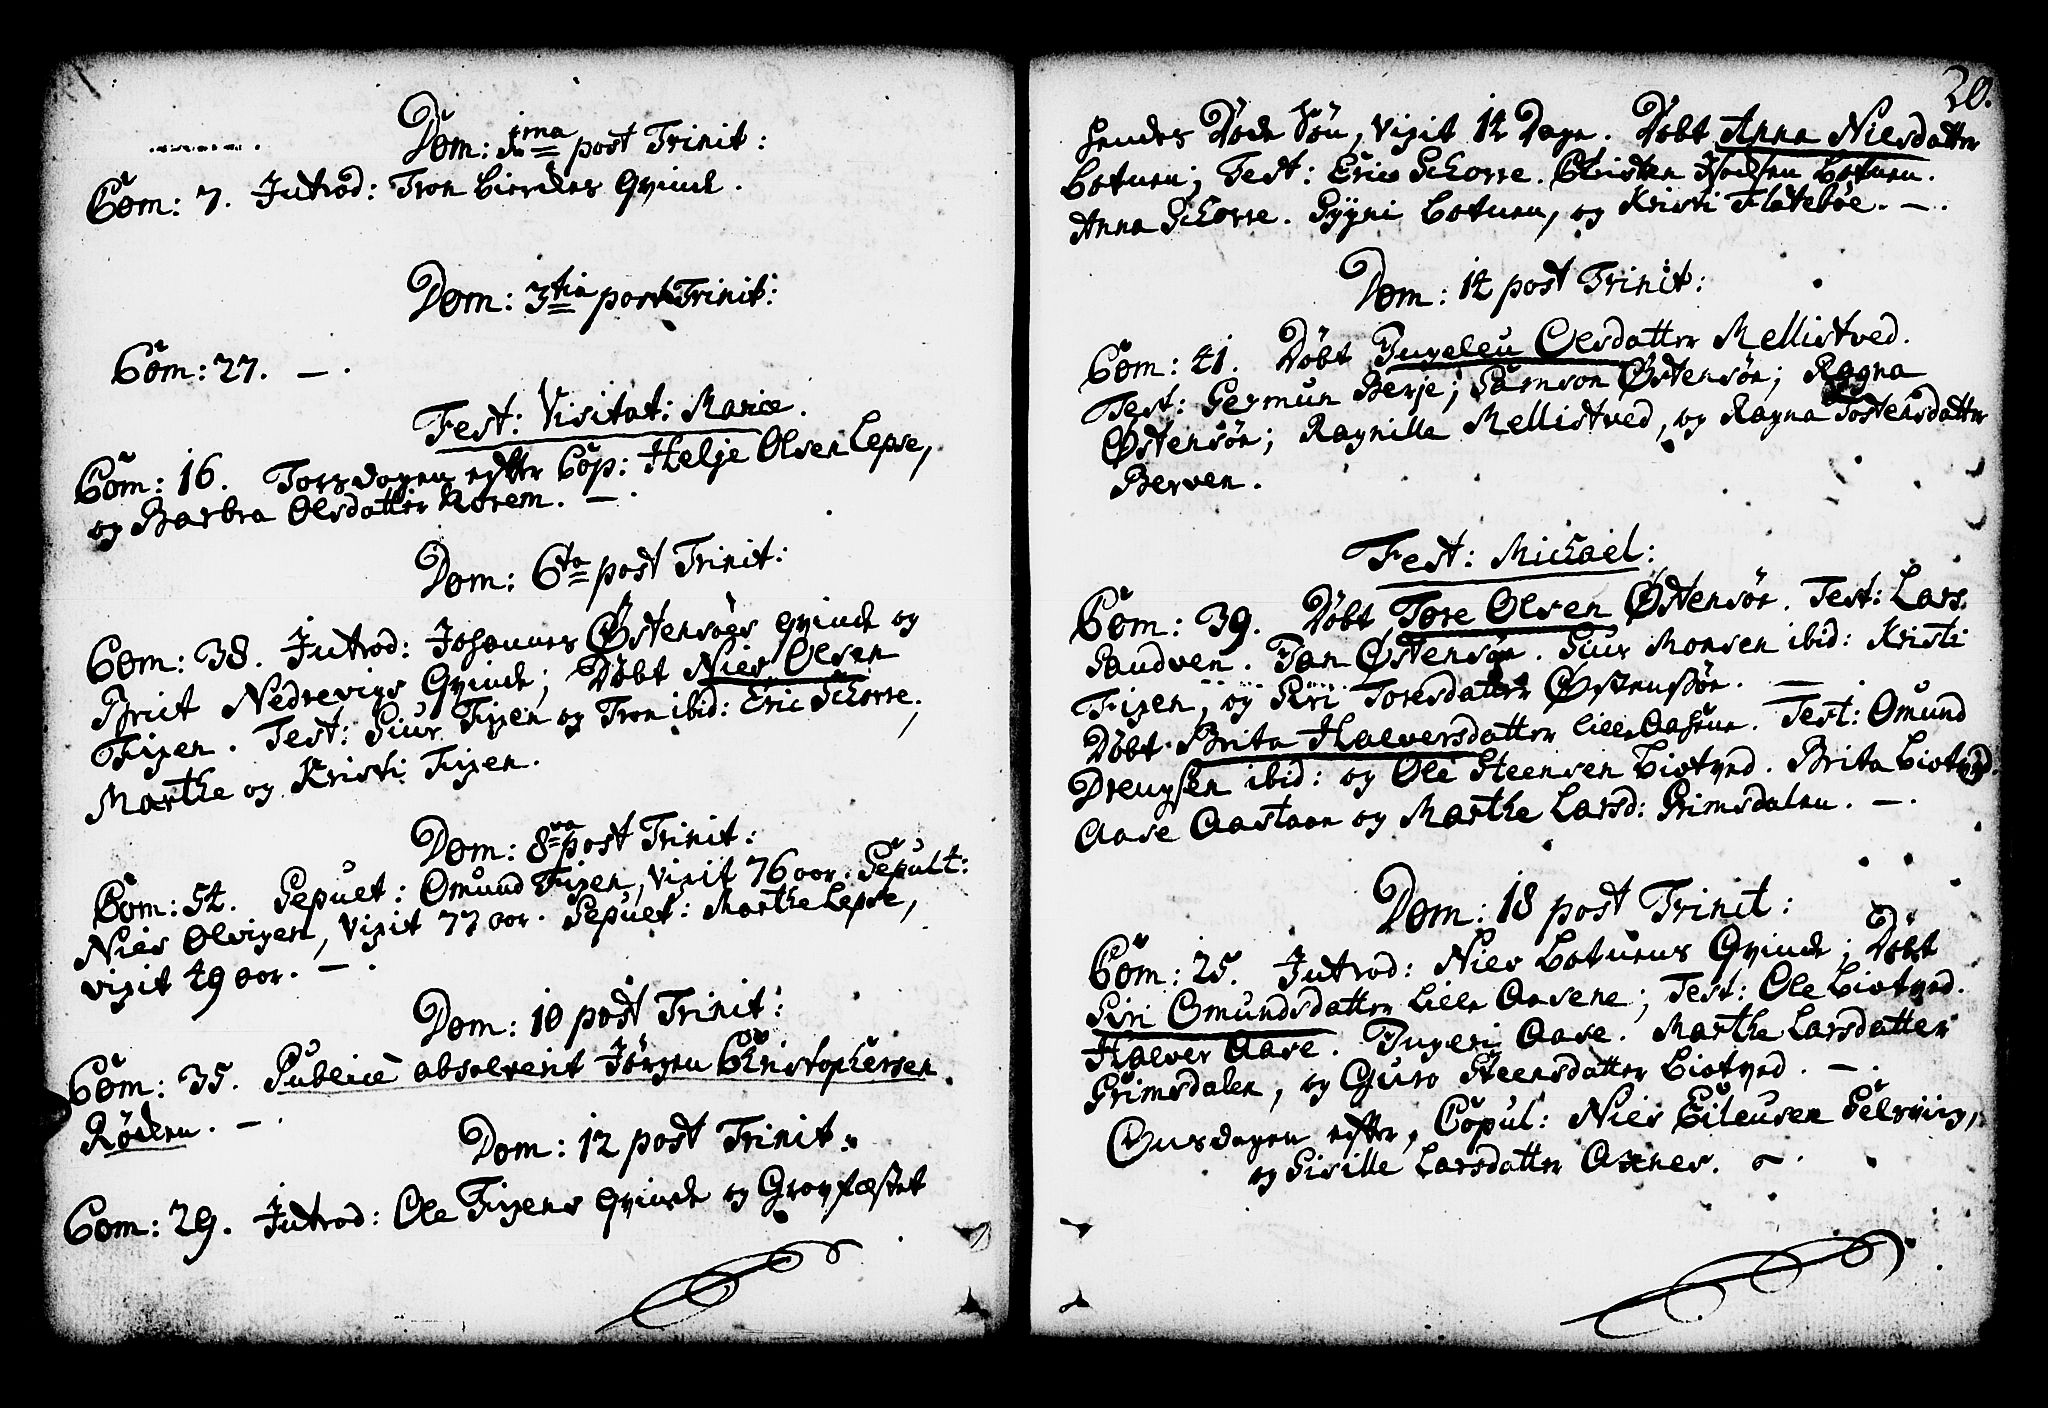 Dom: 1ma post Trinit:
Com: 7. Introd: Tron Qvinde.
Dom: 3tia post Trinit:
Com: 27. —.
Fest: Visitat: Mariæ.
Com: 16. Torsdagen efter Cop: Helje Olsen Lepse,
og Barbra Olsdatter Norem. —.
Dom: 6ta post Trinit:
Com: 38. Introd: Johannes Østensøes Qvinde og
Brict Nedrevigs Qvinde; Døbt Niels Olsen
Fixen. Test: Siur Fixen og Tron ibid: Eric Schorre,
Marthe og Kristi Fixen.
Dom: 8va post Trinit:
Com: 54. Sepult: Omund Fixen, vixit 76 aar. Sepult:
Niels Olvigen, vixit 77 aar. Sepult: Marthe Lepse,
vixit 49 aar. —.
Dom: 10 post Trinit:
Com: 35. Publicè absolverit Jørgen Christophersen
Røcken. —.
Dom: 12 post Trinit:
Com: 29. Introd: Ole Fixens Qvinde og Gravfæstet
20.
hendes døde Søn, vixit 14 Dage. Døbt Anna Nielsdatter
Botnen; Test: Eric Schorre. Christen Botnen.
Anna Schorre. Gyri Botnen, og Kristi Flatebøe. —.
Dom: 14 post Trinit:
Com: 41. Døbt Ingeleu Olsdatter Mellistved.
Test: Germun Berje; Samson Østensøe; Ragna
Østensøe; Ragnille Mellistved, og Ragna Tostensdatter
Berven.
Fest: Michael:
Com: 39. Døbt Tore Olsen Østensøe. Test: Lars
Sandven. Jan Østensøe. Siur Monsen ibid: Kristi
Fixen, og Siri Toresdatter Østensøe. —.
Døbt Brita Halversdatter Lille Aasene. Test: Omund
Drengsen ibid: og Ole Steensen Liotved. Brita Liotved.
Aase Aastaan og Marthe Larsd: Grimsdalen. —.
Dom: 18 post Trinit:
Com: 25. Introd: Niels Botnens Qvinde; Døbt
Siri Omundsdatter Lille Aasene; Test: Ole Liotved.
Halver Aase. Ingeri Aase. Marthe Larsdatter
Grimsdalen, og Guro Steensdatter Liotved. —.
Onsdagen efter, Copul: Niels Eilensen Selsviig,
og Sisille Larsdatter Axnes. —.